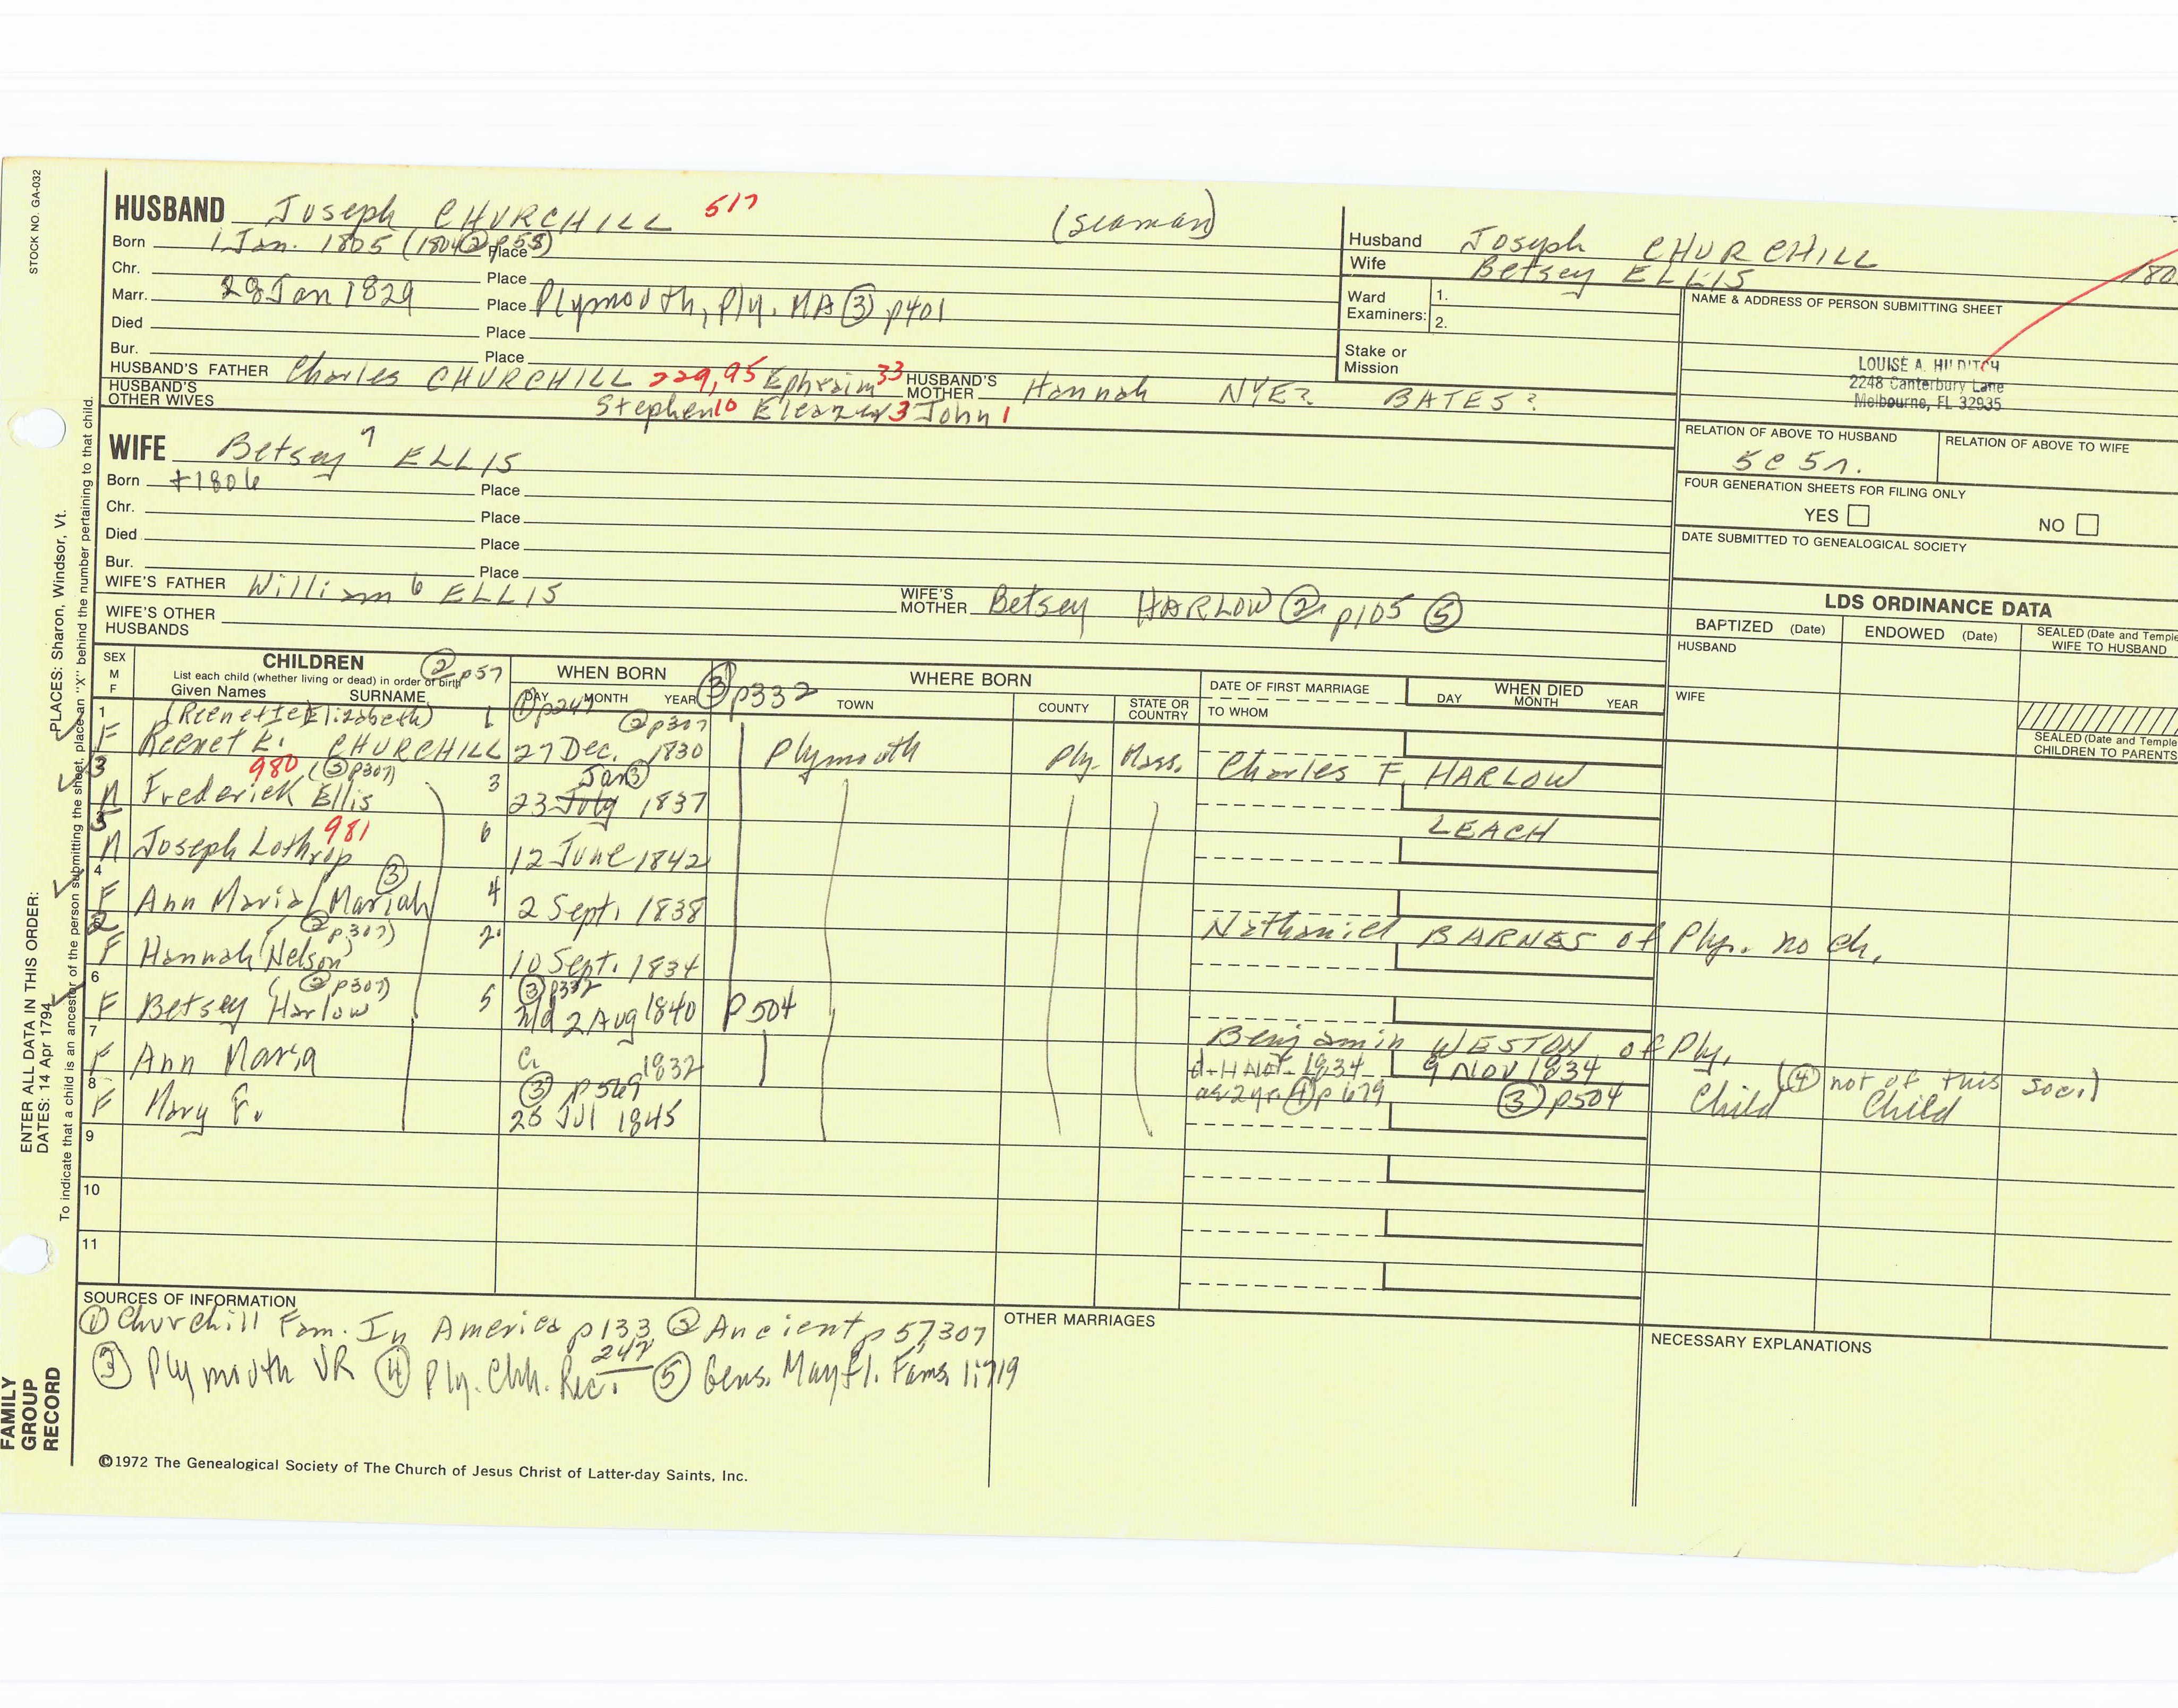 STOCK NO. GA-032
HUSBAND Joseph CHURCHILL 517 (seaman)
Born 1 Jan. 1805 (1804 ② p58) Place
Chr. Place
Marr. 28 Jan 1829 Place Plymouth, Ply. MA ③ p401
Died Place
Bur. Place
HUSBAND'S FATHER Charles CHURCHILL 229, 95 Ephraim 33 HUSBAND'S MOTHER Hannah NYE? BATES?
HUSBAND'S OTHER WIVES Stephen 10 Eleazer 3 John 1
WIFE Betsey 7 ELLIS
Born +1806 Place
Chr. Place
Died Place
Bur. Place
WIFE'S FATHER William 6 ELLIS WIFE'S MOTHER Betsey HARLOW ② p105 ⑤
WIFE'S OTHER HUSBANDS
Husband Joseph CHURCHILL 180
Wife Betsey ELLIS
Ward Examiners: 1.
2.
Stake or Mission
NAME & ADDRESS OF PERSON SUBMITTING SHEET
LOUISE A. HILDITCH
2248 Canterbury Lane
Melbourne, FL 32935
RELATION OF ABOVE TO HUSBAND RELATION OF ABOVE TO WIFE
5c 5r.
FOUR GENERATION SHEETS FOR FILING ONLY
YES NO
DATE SUBMITTED TO GENEALOGICAL SOCIETY
LDS ORDINANCE DATA
BAPTIZED (Date) ENDOWED (Date) SEALED (Date and Temple
WIFE TO HUSBAND
HUSBAND
WIFE
SEALED (Date and Temple
CHILDREN TO PARENTS
SEX M F CHILDREN ② p57
List each child (whether living or dead) in order of birth
Given Names SURNAME
WHEN BORN
DAY MONTH YEAR
① p247 ③ p332
WHERE BORN
TOWN COUNTY STATE OR COUNTRY
DATE OF FIRST MARRIAGE
TO WHOM
WHEN DIED
DAY MONTH YEAR
1 (Reenette Elizabeth) 1 ② p307
F Reenet E. CHURCHILL 27 Dec. 1830 Plymouth Ply. Mass. Charles F. HARLOW
3 980 (② p307) Jan ③
M Frederick Ellis 3 23 July 1837 LEACH
3 981
M Joseph Lothrop 6 12 June 1842
4 ③
F Ann Maria/Mariah 4 2 Sept. 1838
2 (② p307)
F Hannah (Nelson) 2 10 Sept. 1834 Nathaniel BARNES of Ply. no ch.
6 (② p307) ③ p332
F Betsey Harlow 5 2 Aug 1840 p504 Benjamin WESTON of Ply.
7
F Ann Maria c 1832 1834 9 NOV 1834
8 ③ p569 ④ p 679 ③ p504 Child Child (④ not of this soc.)
F Mary F. 25 Jul 1845
9
10
11
SOURCES OF INFORMATION
① Churchill Fam. In America p133 ② Ancient p57, 307
247
③ Plymouth VR ④ Ply. Chh. Rec. ⑤ Gens. Mayfl. Fams. 1:719
OTHER MARRIAGES
NECESSARY EXPLANATIONS
©1972 The Genealogical Society of The Church of Jesus Christ of Latter-day Saints, Inc.
FAMILY
GROUP
RECORD
ENTER ALL DATA IN THIS ORDER:
DATES: 14 Apr 1794
PLACES: Sharon, Windsor, Vt.
To indicate that a child is an ancestor of the person submitting the sheet, place an "X" behind the number pertaining to that child.